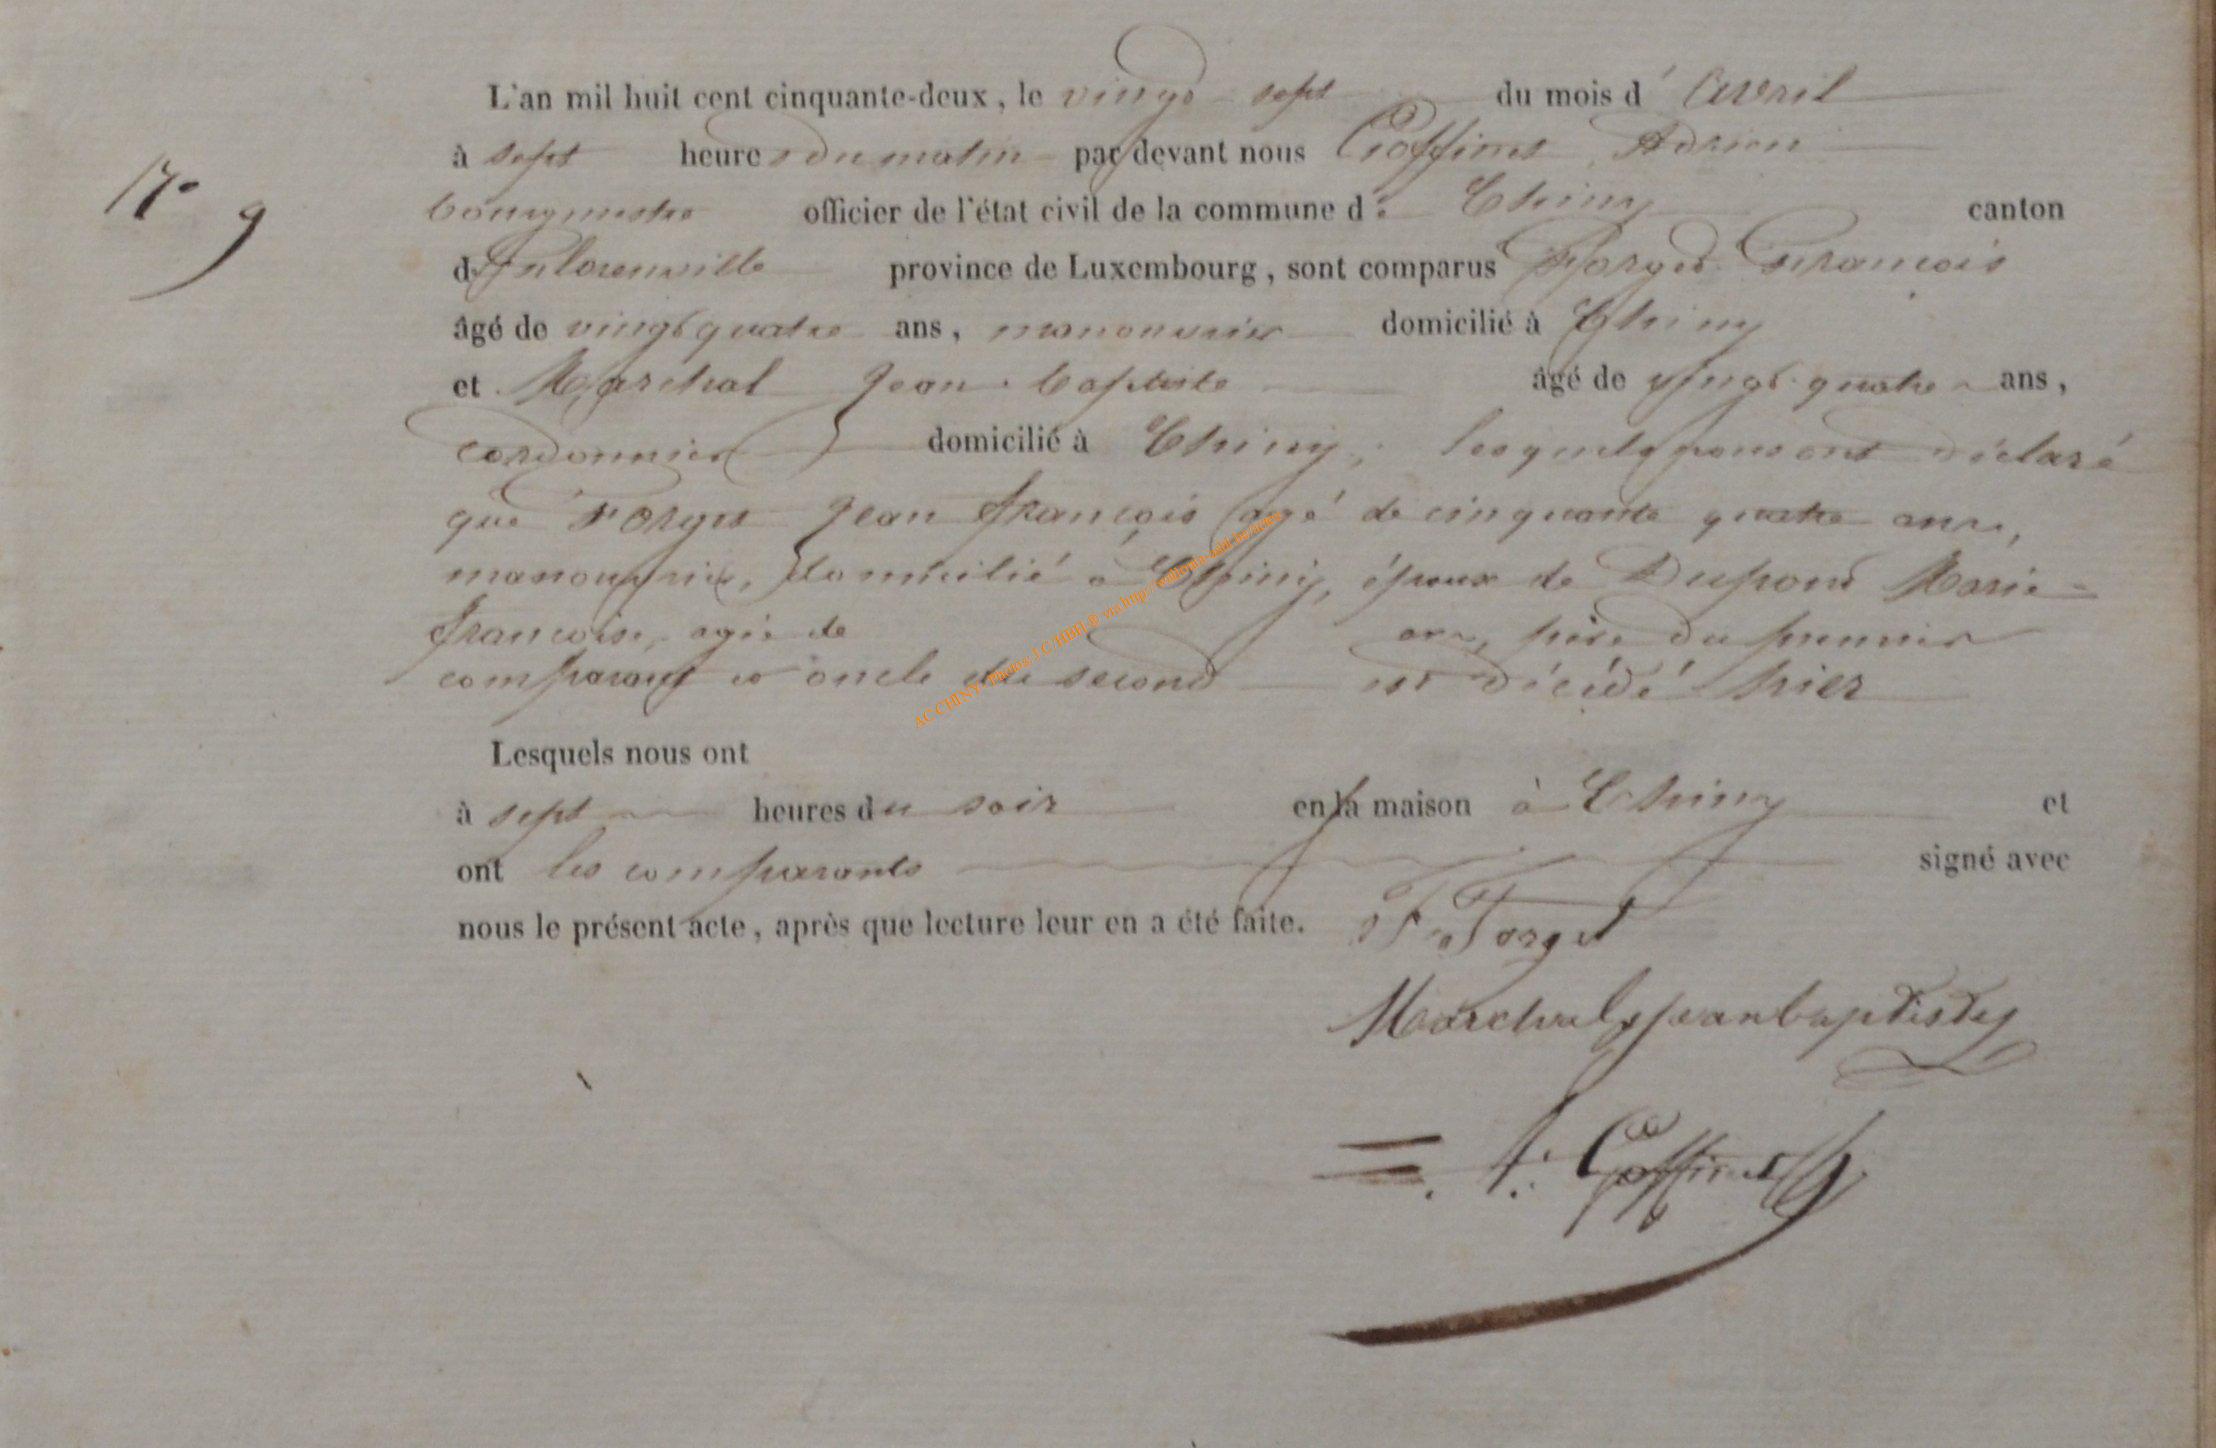 L'an mil huit cent cinquante-deux, le vingt sept du mois d'Avril
à sept heures du matin par devant nous Goffinet Adrien
N° 9
bourgmestre officier de l'état civil de la commune de Chiny canton
de florenville province de Luxembourg, sont comparus Forget François
âgé de vingt quatre ans, manouvrier domicilié à Chiny
et Maréchal Jean baptiste âgé de vingt quatre ans,
cordonnier domicilié à Chiny, lesquels nous ont déclaré
que Forget Jean françois agé de cinquante quatre ans,
manouvrier, domicilié à Chiny, époux de Dupond Marie-
françoise, agée de ans, père du premier
comparant et oncle du second est décédé hier
Lesquels nous ont
à sept heures du soir en la maison à Chiny et
ont les comparants signé avec
nous le présent acte, après que lecture leur en a été faite. F Forget
Marechal jean baptiste
A. Goffinet
AC CHINY Photos J.C HBH ® via http: